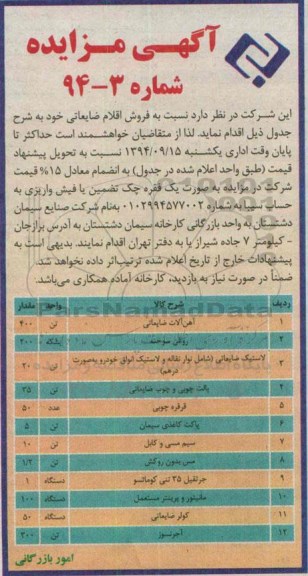 آگهی مزایده
شماره ۳-۹۴
این شرکت در نظر دارد نسبت به فروش اقلام ضایعاتی خود به شرح
جدول ذیل اقدام نماید. لذا از متقاضیان خواهشمند است حداکثر تا
پایان وقت اداری یکشنبه ۱۳۹۴/۰۹/۱۵ نسبت به تحویل پیشنهاد
قیمت (طبق واحد اعلام شده در جدول) به انضمام معادل ۱۵% قیمت
شرکت در مزایده به صورت یک فقره چک تضمین یا فیش واریزی به
حساب سیبا به شماره ۰۱۰۲۹۹۴۵۷۷۰۰۲ به‌نام شرکت صنایع سیمان
دشتستان به واحد بازرگانی کارخانه سیمان دشتستان به آدرس برازجان
- کیلومتر ۷ جاده شیراز یا به دفتر تهران اقدام نمایند. بدیهی است به
پیشنهادات خارج از تاریخ اعلام شده ترتیب‌اثر داده نخواهد شد.
ضمناً در صورت نیاز به بازدید، کارخانه آماده همکاری می‌باشد.
ردیف شرح کالا واحد مقدار
۱ آهن‌آلات ضایعاتی تن ۴۰۰
۲ روغن سوخته بشکه ۲۰۰
۳ لاستیک ضایعاتی (شامل نوار نقاله و لاستیک انواع خودرو به‌صورت درهم) تن ۲۰
۴ پالت چوبی و چوب ضایعاتی تن ۳۵
۵ قرقره چوبی عدد ۵۰
۶ پاکت کاغذی سیمان تن ۵
۷ سیم مسی و کابل تن ۱۰
۸ مس بدون روکش تن ۱/۲
۹ جرثقیل ۳۵ تنی کوماتسو دستگاه ۱
۱۰ مانیتور و پرینتر مستعمل دستگاه ۱۰۰
۱۱ کولر ضایعاتی دستگاه ۵۰
۱۲ آجرنسوز تن ۳۰۰
امور بازرگانی